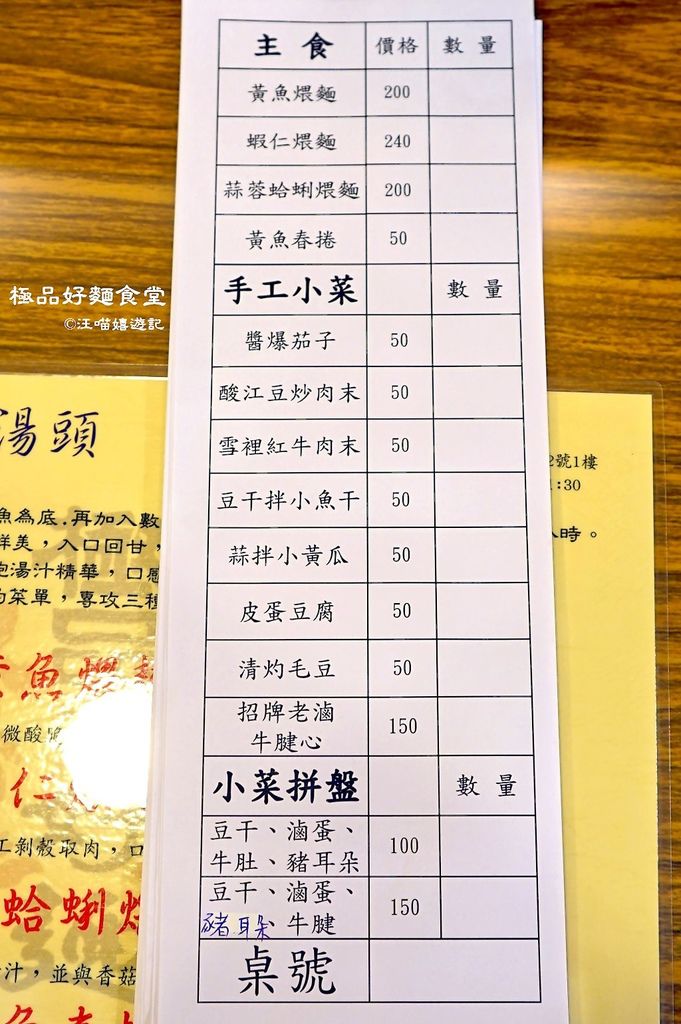 主食 價格 數量
黃魚煨麵 200
蝦仁煨麵 240
蒜蓉蛤蜊煨麵 200
黃魚春捲 50
手工小菜 數量
醬爆茄子 50
酸江豆炒肉末 50
雪裡紅牛肉末 50
豆干拌小魚干 50
蒜拌小黃瓜 50
皮蛋豆腐 50
清灼毛豆 50
招牌老滷
牛腱心 150
小菜拼盤 數量
豆干、滷蛋、
牛肚、豬耳朵 100
豆干、滷蛋、
豬耳朵 牛腱 150
桌號
極品好麵食堂
©汪喵嬉遊記
湯頭
魚為底.再加入數
鮮美，入口回甘，
湯汁精華，口感
的菜單，專攻三種
魚煨
微酸
仁
工剝殼取肉，口
蛤蜊煨
汁，並與香菇
2號1樓
:30
時。